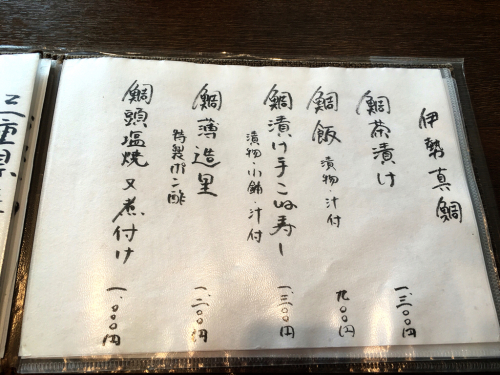 伊勢真鯛
鯛茶漬け 一、三〇〇円
鯛飯 漬物・汁付 九〇〇円
鯛漬け手こね寿し 一、三〇〇円
漬物・小鉢・汁付
鯛薄造里 一、二〇〇円
特製ポン酢
鯛頭塩焼又煮付け 一、〇〇〇円
三重県